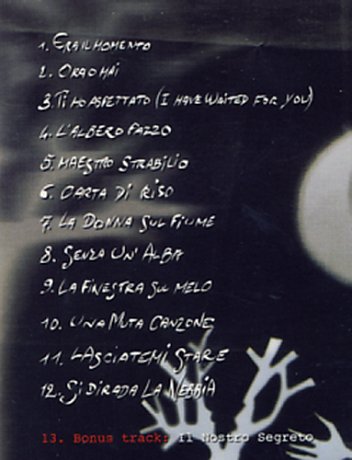 1. ERA IL MOMENTO
2. ORA O MAI
3. TI HO ASPETTATO (I HAVE WAITED FOR YOU)
4. L'ALBERO PAZZO
5. MAESTRO STRABILIO
6. CARTA DI RISO
7. LA DONNA SUL FIUME
8. SENZA UN' ALBA
9. LA FINESTRA SUL MELO
10. UNA MUTA CANZONE
11. LASCIATEMI STARE
12. SI DIRADA LA NEBBIA
13. Bonus track: Il Nostro Segreto